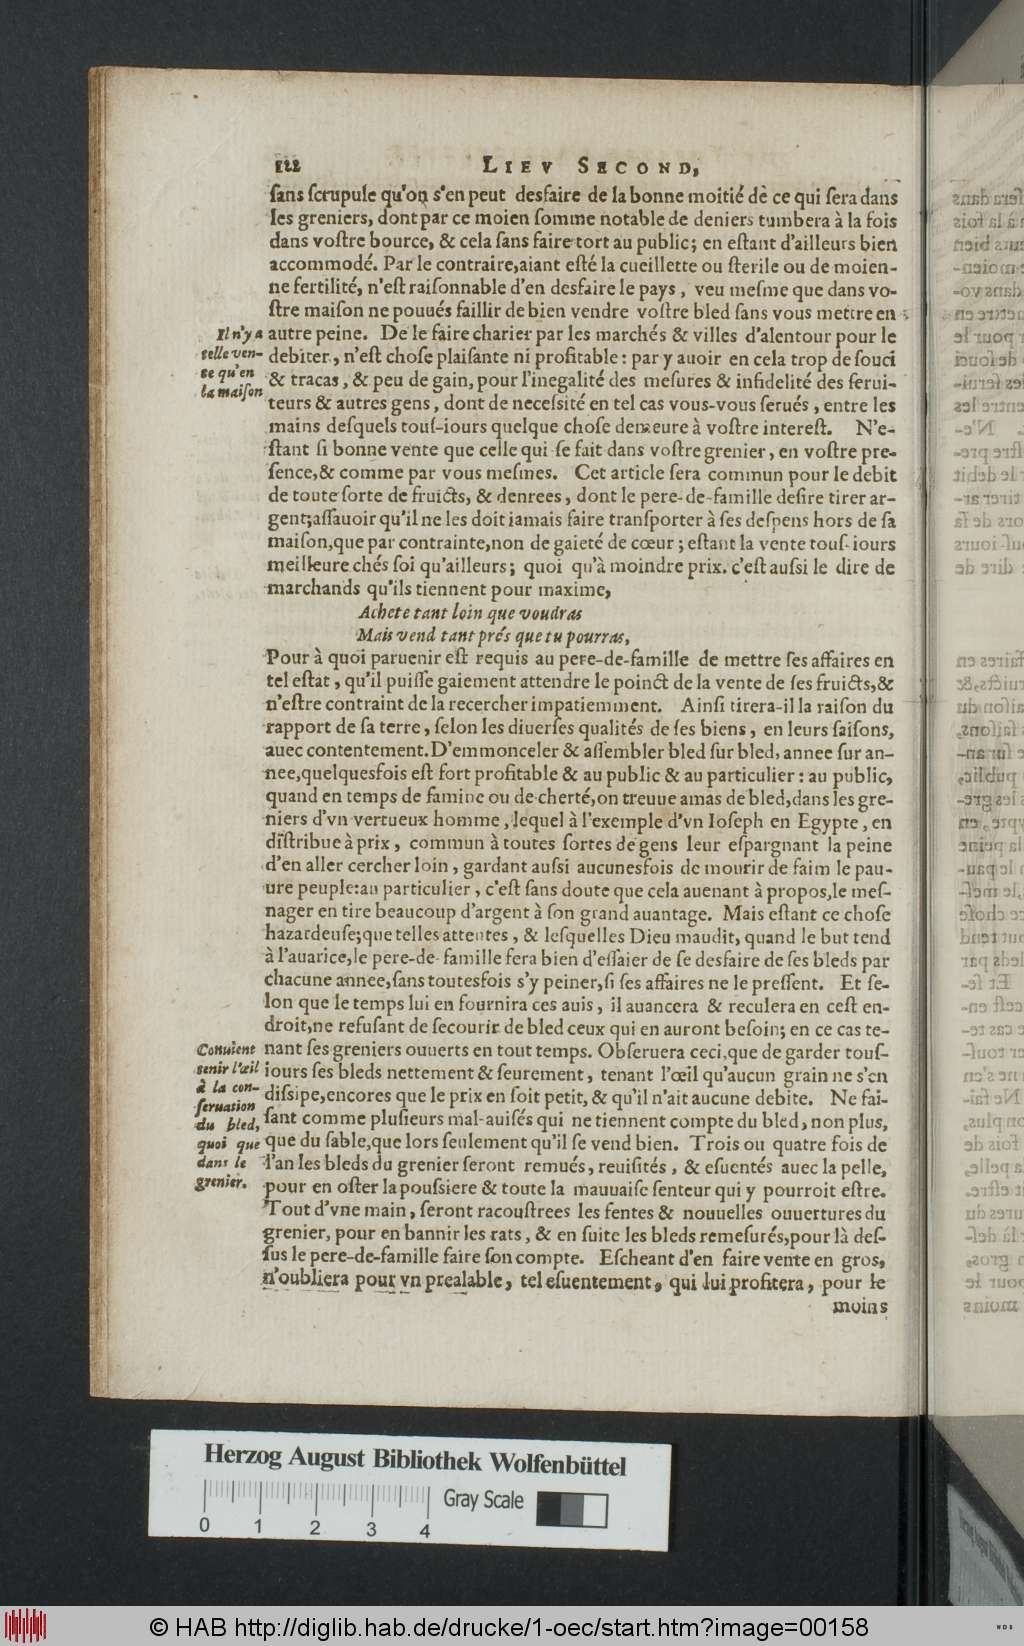 112 LIEV SECOND,
ſans ſcrupule qu'on s'en peut desfaire de la bonne moitié dè ce qui ſera dans
les greniers, dont par ce moien ſomme notable de deniers tumbera à la fois
dans voſtre bource, & cela ſans faire tort au public; en eſtant d'ailleurs bien
accommodé. Par le contraire,aiant eſté la cueillette ou ſterile ou de moien-
ne fertilité, n'eſt raiſonnable d'en desfaire le pays, veu meſme que dans vo-
ſtre maiſon ne pouués faillir de bien vendre voſtre bled ſans vous mettre en
autre peine. De le faire charier par les marchés & villes d'alentour pour le
debiter, n'eſt choſe plaiſante ni profitable: par y auoir en cela trop de ſouci
& tracas, & peu de gain, pour l'inegalité des meſures & infidelité des ſerui-
teurs & autres gens, dont de neceſsité en tel cas vous-vous ſerués, entre les
mains deſquels touſ-iours quelque choſe demeure à voſtre intereſt. N'e-
ſtant ſi bonne vente que celle qui ſe fait dans voſtre grenier, en voſtre pre-
ſence,& comme par vous meſmes. Cet article ſera commun pour le debit
de toute ſorte de fruicts, & denrees, dont le pere-de-famille deſire tirer ar-
gent;aſſauoir qu'il ne les doit iamais faire tranſporter à ſes deſpens hors de ſa
maiſon,que par contrainte,non de gaieté de cœur; eſtant la vente touſ-iours
meilleure chés ſoi qu'ailleurs; quoi qu'à moindre prix. c'eſt auſsi le dire de
marchands qu'ils tiennent pour maxime,
Achete tant loin que voudras
Mais vend tant prés que tu pourras,
Pour à quoi paruenir eſt requis au pere-de-famille de mettre ſes affaires en
tel eſtat, qu'il puiſſe gaiement attendre le poinct de la vente de ſes fruicts,&
n'eſtre contraint de la recercher impatiemment. Ainſi tirera-il la raiſon du
rapport de ſa terre, ſelon les diuerſes qualités de ſes biens, en leurs ſaiſons,
auec contentement. D'emmonceler & aſſembler bled ſur bled, annee ſur an-
nee,quelquesfois eſt fort profitable & au public & au particulier: au public,
quand en temps de famine ou de cherté,on treuue amas de bled,dans les gre-
niers d'vn vertueux homme, lequel à l'exemple d'vn Ioſeph en Egypte, en
diſtribue à prix, commun à toutes ſortes de gens leur eſpargnant la peine
d'en aller cercher loin, gardant auſsi aucunesfois de mourir de faim le pau-
ure peuple:au particulier, c'eſt ſans doute que cela auenant à propos,le meſ-
nager en tire beaucoup d'argent à ſon grand auantage. Mais eſtant ce choſe
hazardeuſe;que telles attentes, & leſquelles Dieu maudit, quand le but tend
à l'auarice,le pere-de-famille fera bien d'eſſaier de ſe desfaire de ſes bleds par
chacune annee,ſans toutesfois s'y peiner,ſi ſes affaires ne le preſſent. Et ſe-
lon que le temps lui en fournira ces auis, il auancera & reculera en ceſt en-
droit,ne refuſant de ſecourir de bled ceux qui en auront beſoin; en ce cas te-
nant ſes greniers ouuerts en tout temps. Obſeruera ceci,que de garder touſ-
iours ſes bleds nettement & ſeurement, tenant l'œil qu'aucun grain ne s'en
diſsipe,encores que le prix en ſoit petit, & qu'il n'ait aucune debite. Ne fai-
ſant comme pluſieurs mal-auiſés qui ne tiennent compte du bled, non plus,
que du ſable,que lors ſeulement qu'il ſe vend bien. Trois ou quatre fois de
l'an les bleds du grenier ſeront remués, reuiſités, & eſuentés auec la pelle,
pour en oſter la pouſsiere & toute la mauuaiſe ſenteur qui y pourroit eſtre.
Tout d'vne main, ſeront racouſtrees les fentes & nouuelles ouuertures du
grenier, pour en bannir les rats, & en ſuite les bleds remeſurés,pour là deſ-
ſus le pere-de-famille faire ſon compte. Eſcheant d'en faire vente en gros,
n'oubliera pour vn prealable, tel eſuentement, qui lui profitera, pour le
moins
Il n'y a
telle ven-
te qu'en
la maiſon
Conuient
tenir l'œil
à la con-
ſeruation
du bled,
quoi que
dans le
grenier.
Herzog August Bibliothek Wolfenbüttel
Gray Scale
0 1 2 3 4
© HAB http://diglib.hab.de/drucke/1-oec/start.htm?image=00158